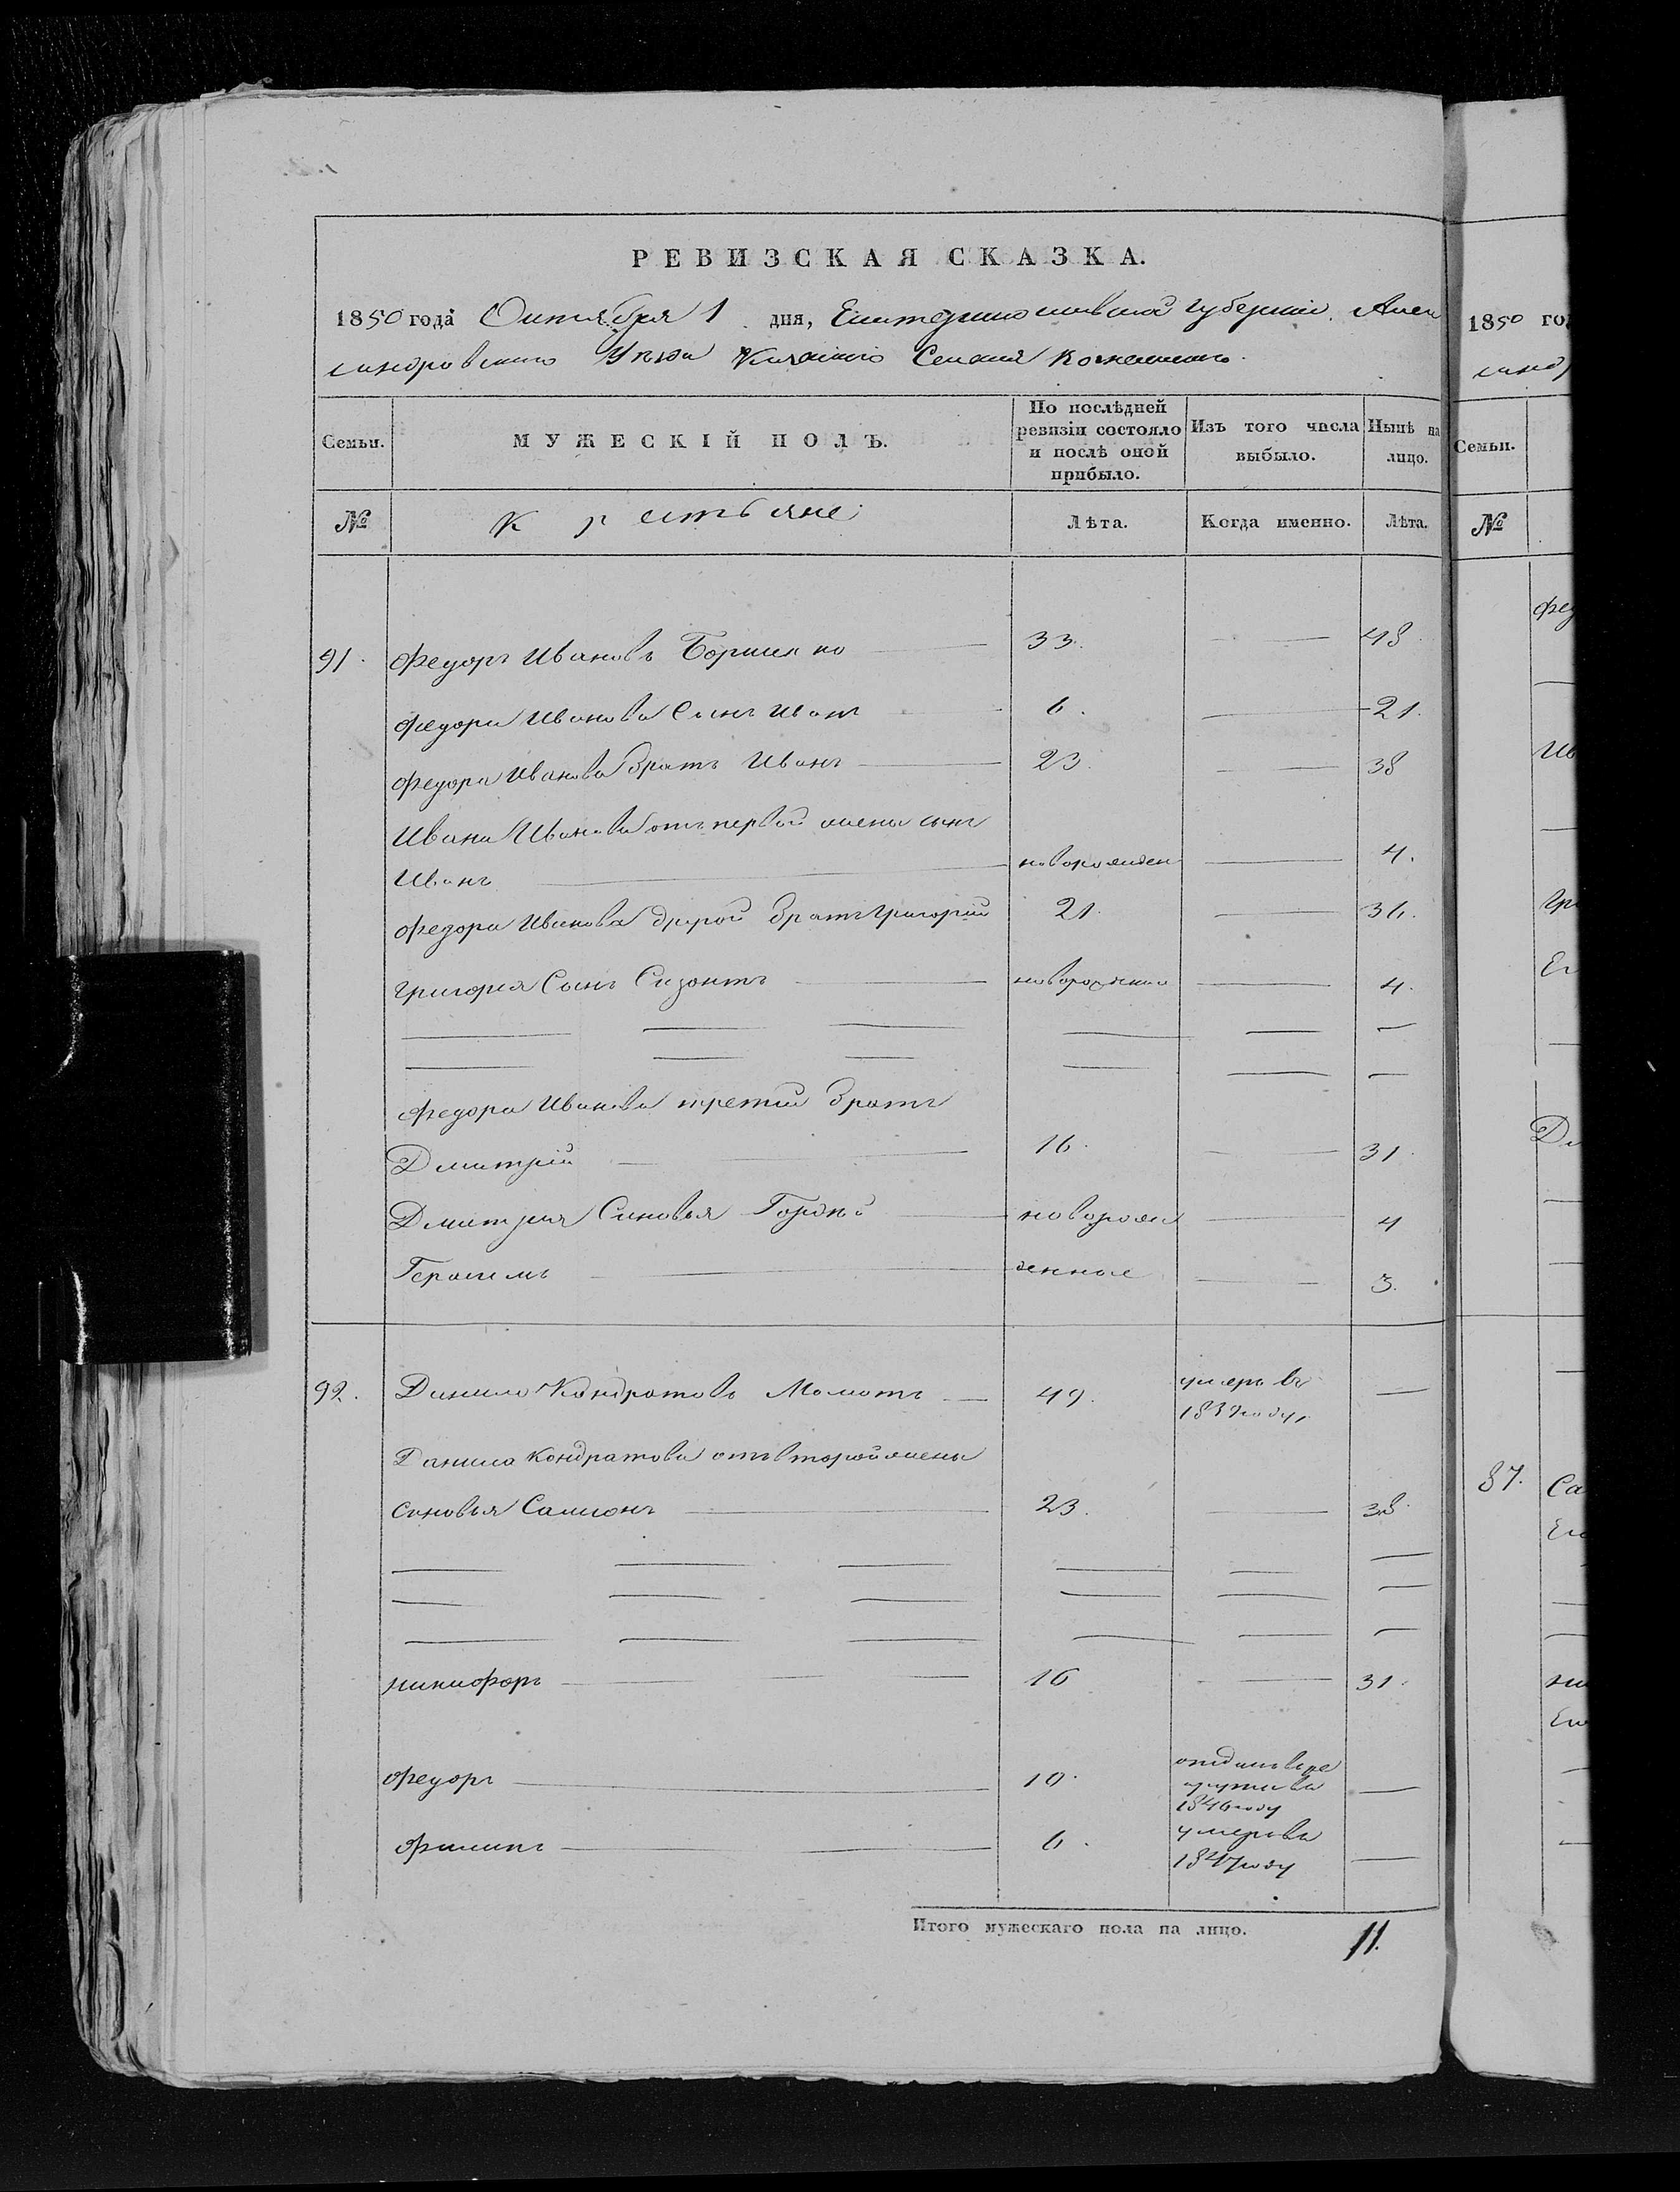 РЕВИЗСКАЯ СКАЗКА.
1850 года Октября 1 дня, Екатеринославской губернии. Алек
сандровского Уезда
1850 го
Семьи.
МУЖЕСКІЙ ПОЛЪ.
По послѣдней ревизіи состояло и послѣ оной прибыло.
Изъ того числа выбыло.
Нынѣ на лицо.
Семьи.
№
Крестьяне
Лѣта.
Когда именно.
Лѣта.
№
91. Федоръ Ивановъ 33. 48
Федора Иванова Сынъ Иванъ 6. 21.
Федора Иванова братъ Иванъ 23. 38
Ивана Иванова отъ первой жены сынъ
Иванъ новорожден 4.
Федора Иванова другой братъ Григорій 21. 36.
Григорія Сынъ Сизонтъ 4.
Федора Иванова третій братъ
Дмитрій 16. 31.
Дмитрія Синовья Гордѣй новорож 4
Герасимъ денные 3.
92. Данило Кондратовъ Моматъ 49. умеръ въ
Данила Кондратова отъ второй жены
синовья Самионъ 23. 38.
Никифоръ 16 31.
Федоръ 10. отданъ въ ре
круты въ
1846 году
Филипъ 6. умеръ въ
1847 году
87.
Итого мужескаго пола на лицо. 11.